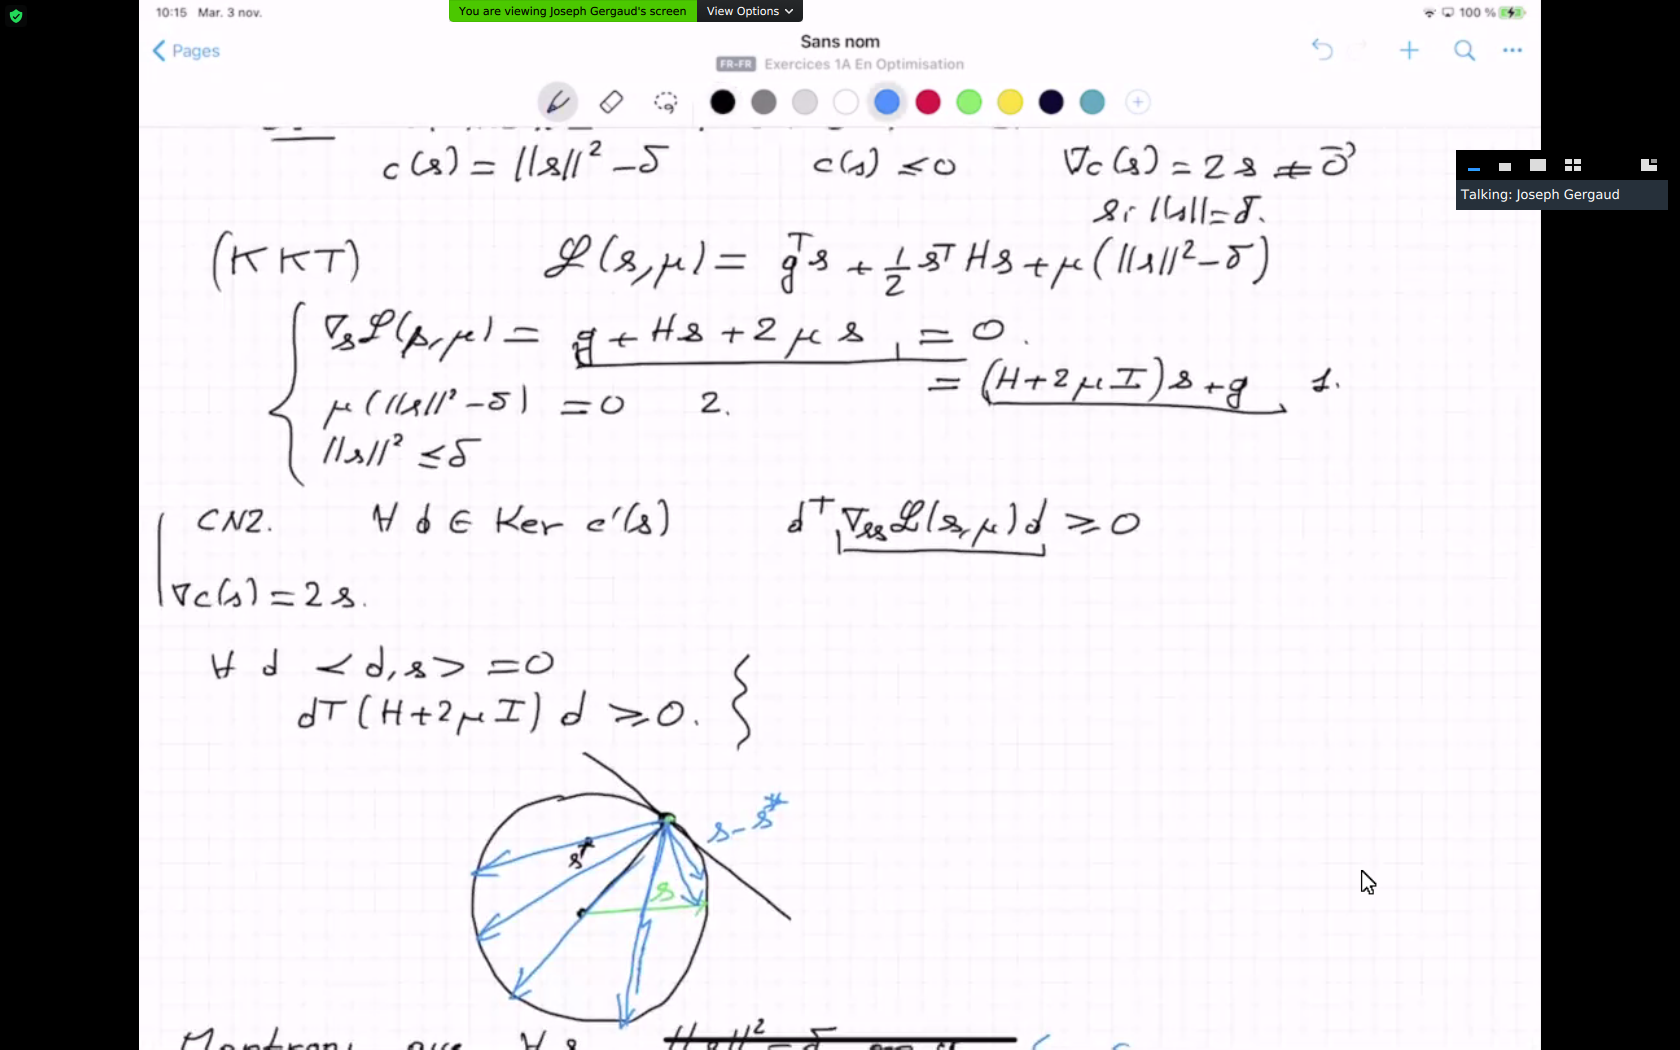 10:15 Mar. 3 nov.
You are viewing Joseph Gergaud's screen
View Options
100 %
Pages
Sans nom
FR-FR Exercices 1A En Optimisation
Talking: Joseph Gergaud
c(s) = ||s||² - δ c(s) ≤ 0 ∇c(s) = 2s ≠ 0⃗
si ||s|| = δ.
(KKT) ℒ(s,μ) = gᵀs + ½ sᵀHs + μ(||s||² - δ)
∇ₛℒ(s,μ) = g + Hs + 2μs = 0.
= (H + 2μI)s + g 1.
μ(||s||² - δ) = 0 2.
||s||² ≤ δ
CN2. ∀ d ∈ Ker c'(s) dᵀ ∇ₛₛℒ(s,μ)d ≥ 0
∇c(s) = 2s.
∀ d <d,s> = 0
dᵀ(H + 2μI)d ≥ 0.
s - s*
s*
s